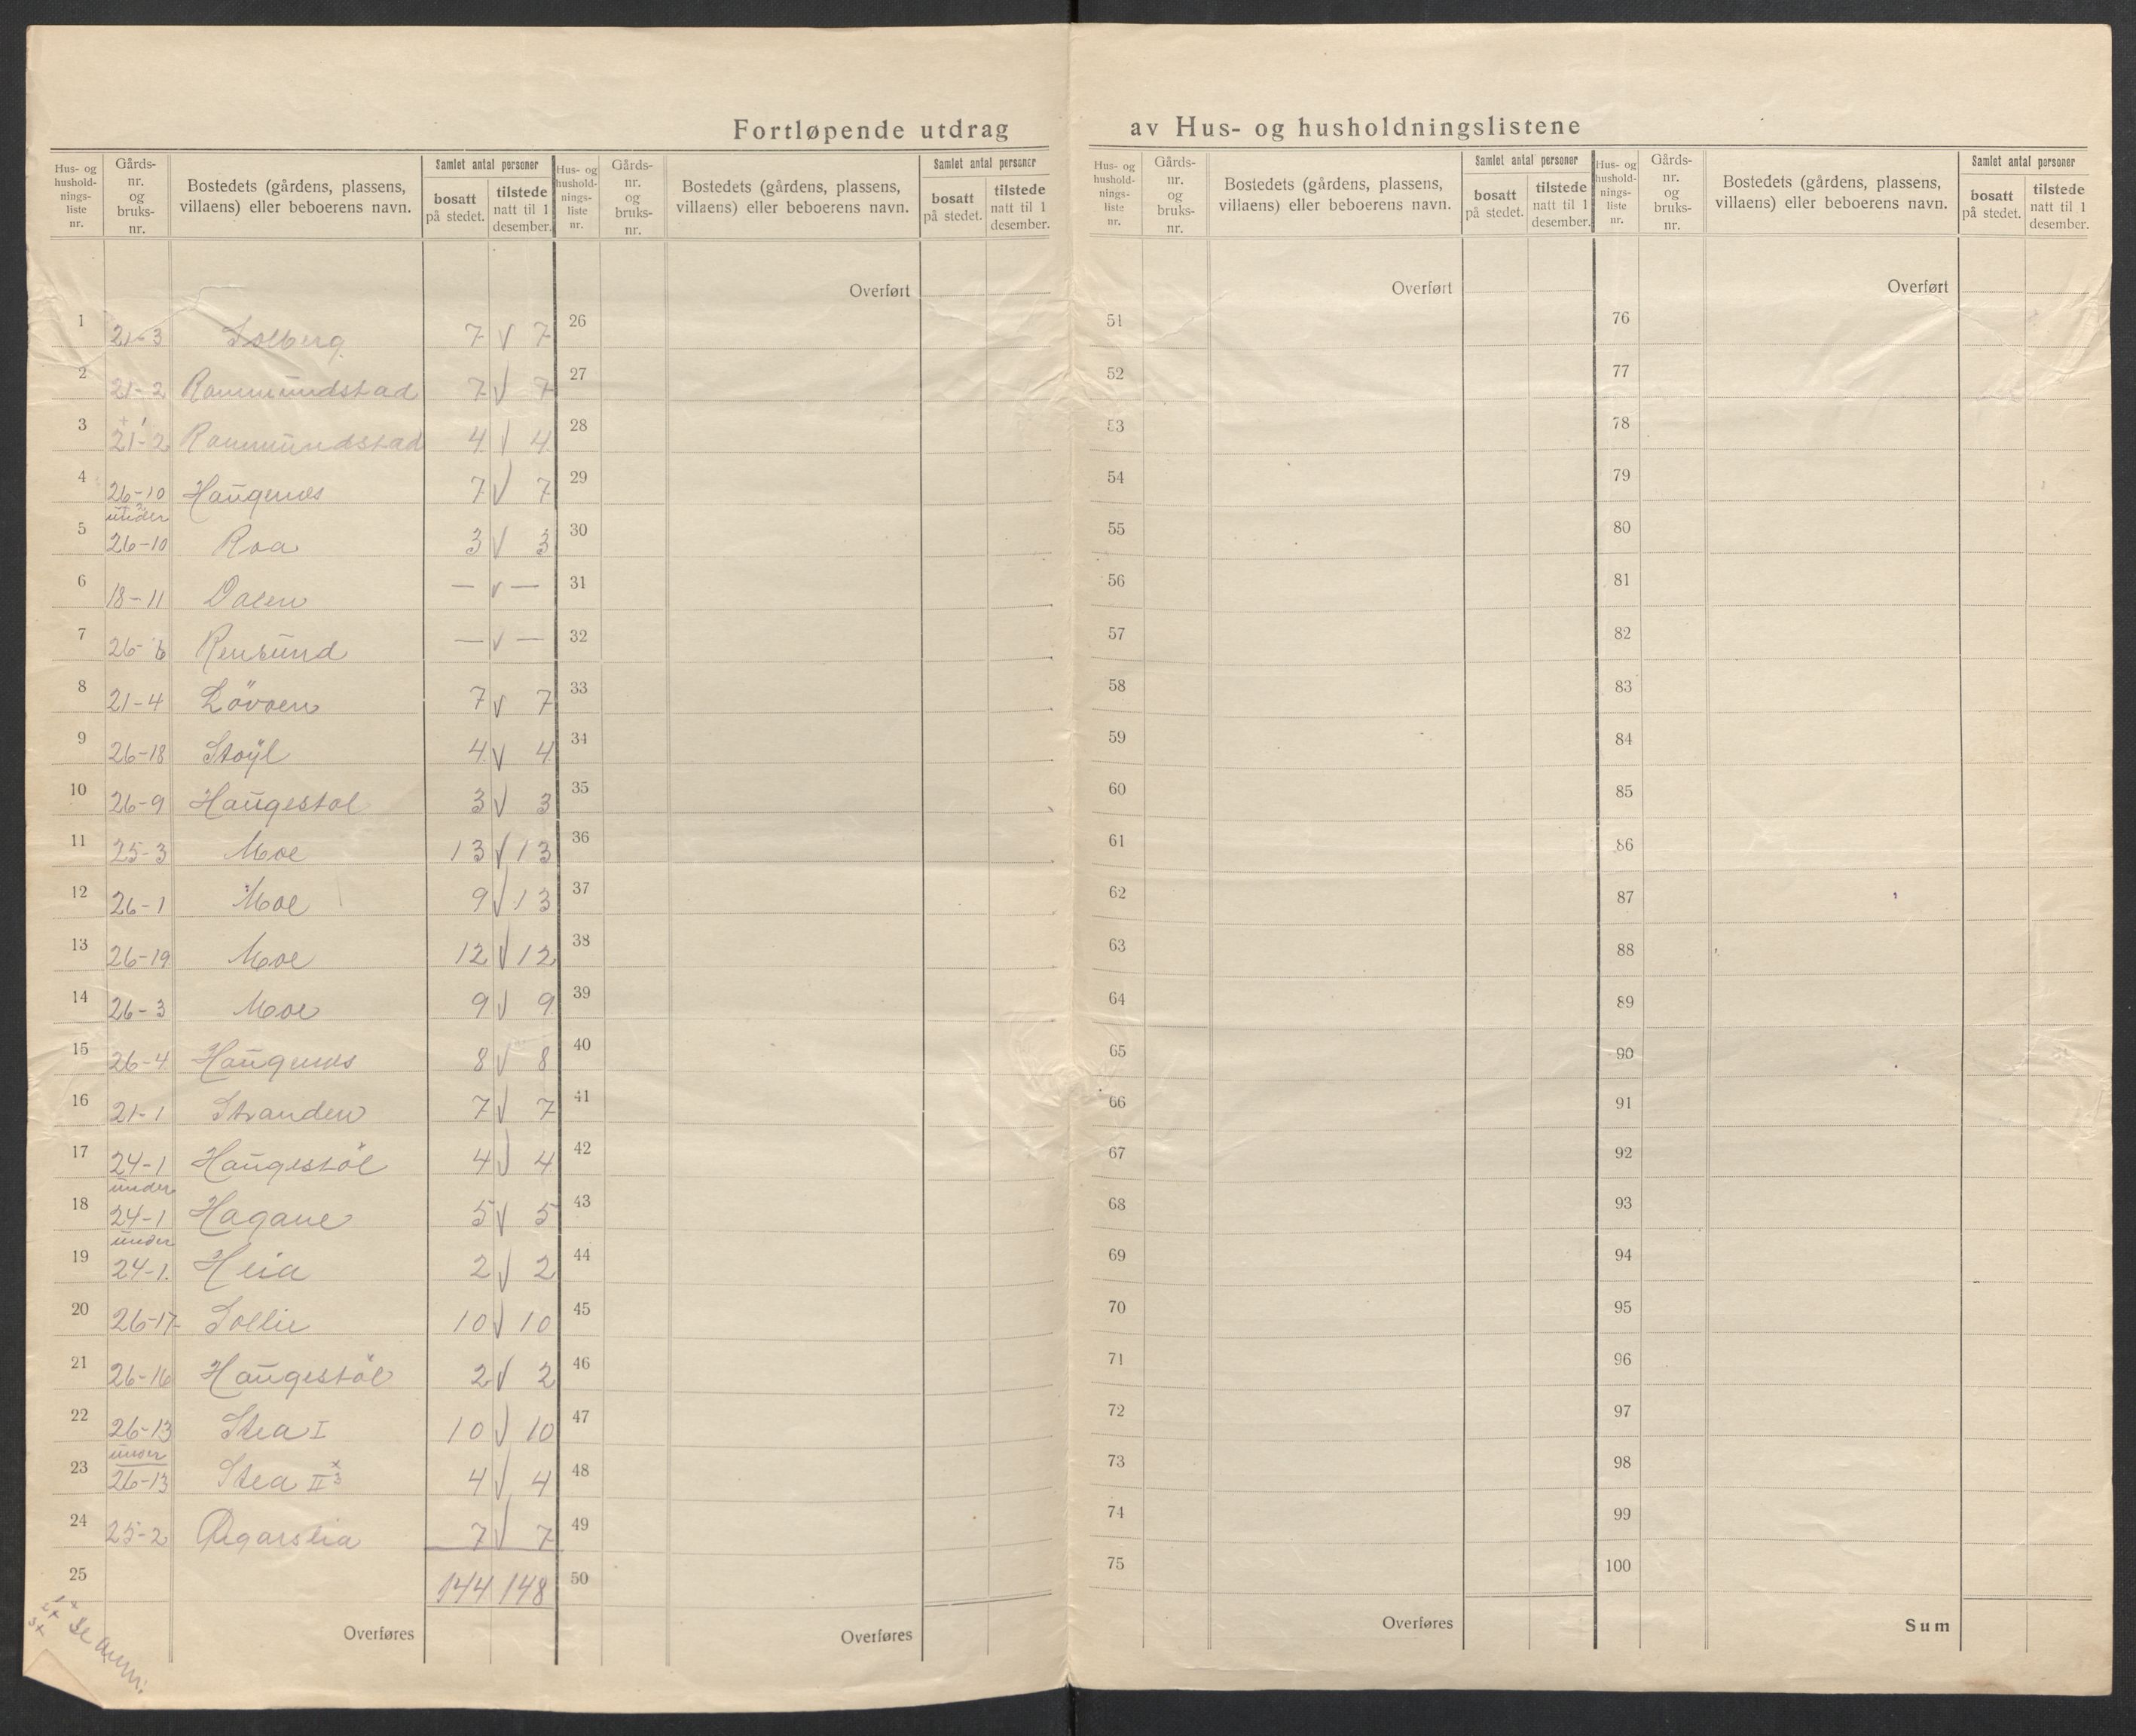 Fortløpende utdrag av Hus- og husholdningslistene
Hus- og husholdnings-liste nr. Gårds-nr. og bruks-nr. Bostedets (gårdens, plassens, villaens) eller beboerens navn. Samlet antal personer bosatt på stedet. tilstede natt til 1 desember.
Hus- og husholdnings-liste nr. Gårds-nr. og bruks-nr. Bostedets (gårdens, plassens, villaens) eller beboerens navn. Samlet antal personer bosatt på stedet. tilstede natt til 1 desember.
Hus- og husholdnings-liste nr. Gårds-nr. og bruks-nr. Bostedets (gårdens, plassens, villaens) eller beboerens navn. Samlet antal personer bosatt på stedet. tilstede natt til 1 desember.
Hus- og husholdnings-liste nr. Gårds-nr. og bruks-nr. Bostedets (gårdens, plassens, villaens) eller beboerens navn. Samlet antal personer bosatt på stedet. tilstede natt til 1 desember.
Overført Overført Overført
1 21-3 Solberg 7 V 7 26 51 76
2 21-2 Rammundstad 7 V 7 27 52 77
3 21-2 Rammundstad 4 V 4 28 53 78
4 26-10 Haugenes 7 V 7 29 54 79
under
5 26-10 Roa 3 V 3 30 55 80
6 18-11 Dalen — V — 31 56 81
7 26-6 Rensund — V — 32 57 82
8 21-4 Lövoen 7 V 7 33 58 83
9 26-18 Stoyl 4 V 4 34 59 84
10 26-9 Haugestol 3 V 3 35 60 85
11 25-3 Moe 13 V 13 36 61 86
12 26-1 Moe 9 V 13 37 62 87
13 26-19 Moe 12 V 12 38 63 88
14 26-3 Moe 9 V 9 39 64 89
15 26-4 Haugenes 8 V 8 40 65 90
16 21-1 Stranden 7 V 7 41 66 91
17 24-1 Haugestöl 4 V 4 42 67 92
under
18 24-1 Hagane 5 V 5 43 68 93
under
19 24-1. Heia 2 V 2 44 69 94
20 26-17 Sollie 10 V 10 45 70 95
21 26-16 Haugestöl 2 V 2 46 71 96
22 26-13 Stea I 10 V 10 47 72 97
under
23 26-13 Stea II 4 V 4 48 73 98
24 25-2 7 V 7 49 74 99
25 144 148 50 75 100
Overføres Overføres Overføres Sum